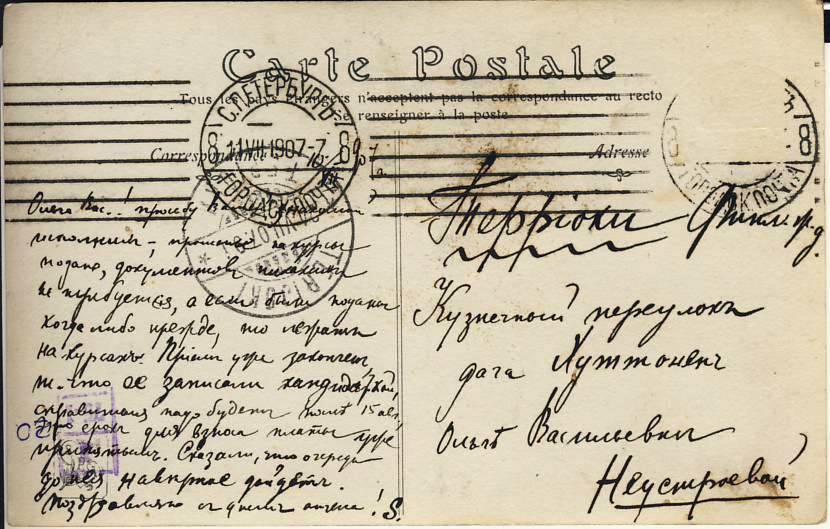 Carte Postale
Tous les pays étrangers n'acceptent pas la correspondance au recto
se renseigner à la poste
Correspondance
Adresse
С.ПЕТЕРБУРГЪ
8 11 VII 1907-7 8
ГОРОДСК. ПОЧТА
TERIJOKI
8
Ольга Вас..! просьбу
исполнилъ – прошенiе на курсы
подано, документовъ никакихъ
не требуется, а если были поданы
когда либо прежде, то лежатъ
на курсахъ. Прiемъ уже законченъ,
т. что ее записали кандидаткой,
справиться надо будетъ послѣ 15 авг.
это срокъ для взноса платы уже
принятымъ. Сказали, что очередь
до нея навѣрное дойдетъ.
Поздравляю съ днемъ ангела! S.
Террiоки Финл. ж. д.
Кузнечный переулокъ
дача Хуттоненъ
Ольгѣ Васильевнѣ
Неустроевой